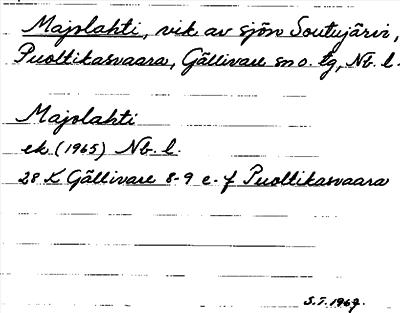 Majolahti, vik av sjön Soutujärvi,
Puoltikasvaara, Gällivare sn o. tg, Nb. l.
Majolahti
ek (1965) Nb. l.
28 K Gällivare 8-9 e-f Puoltikasvaara
S.T. 1969.